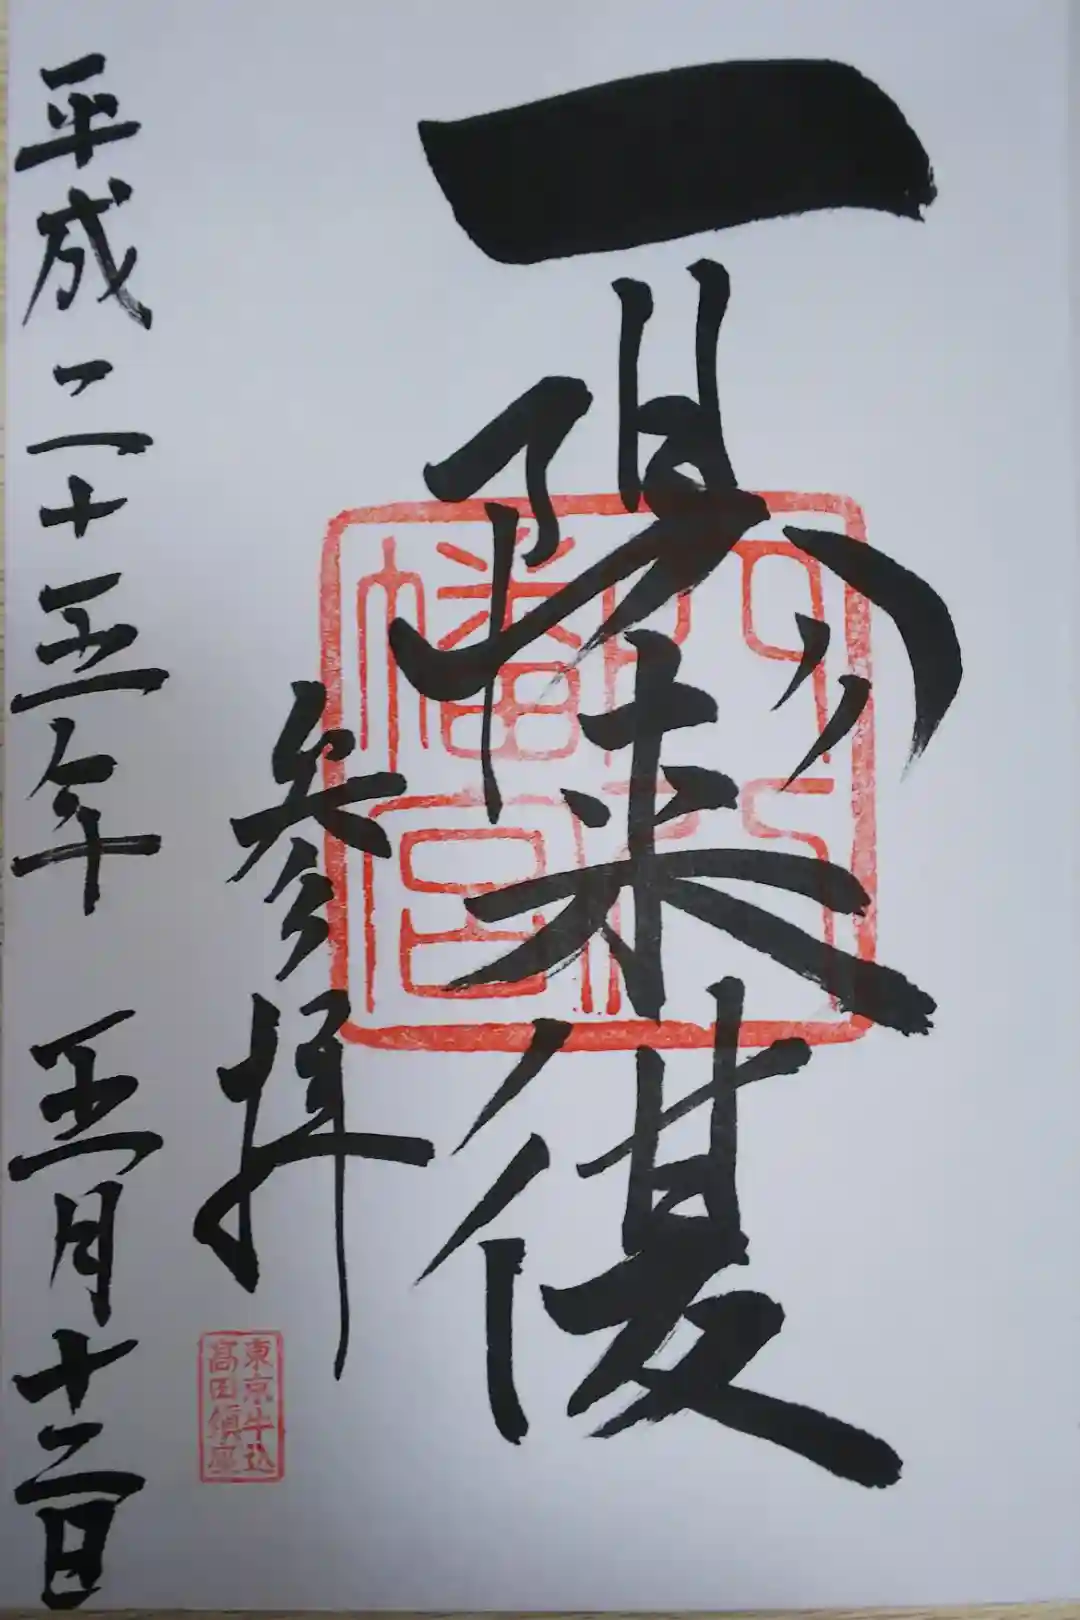 一陽来復
穴八
幡宮
参拝
東京牛込
高田鎮座
平成二十五年 五月十二日